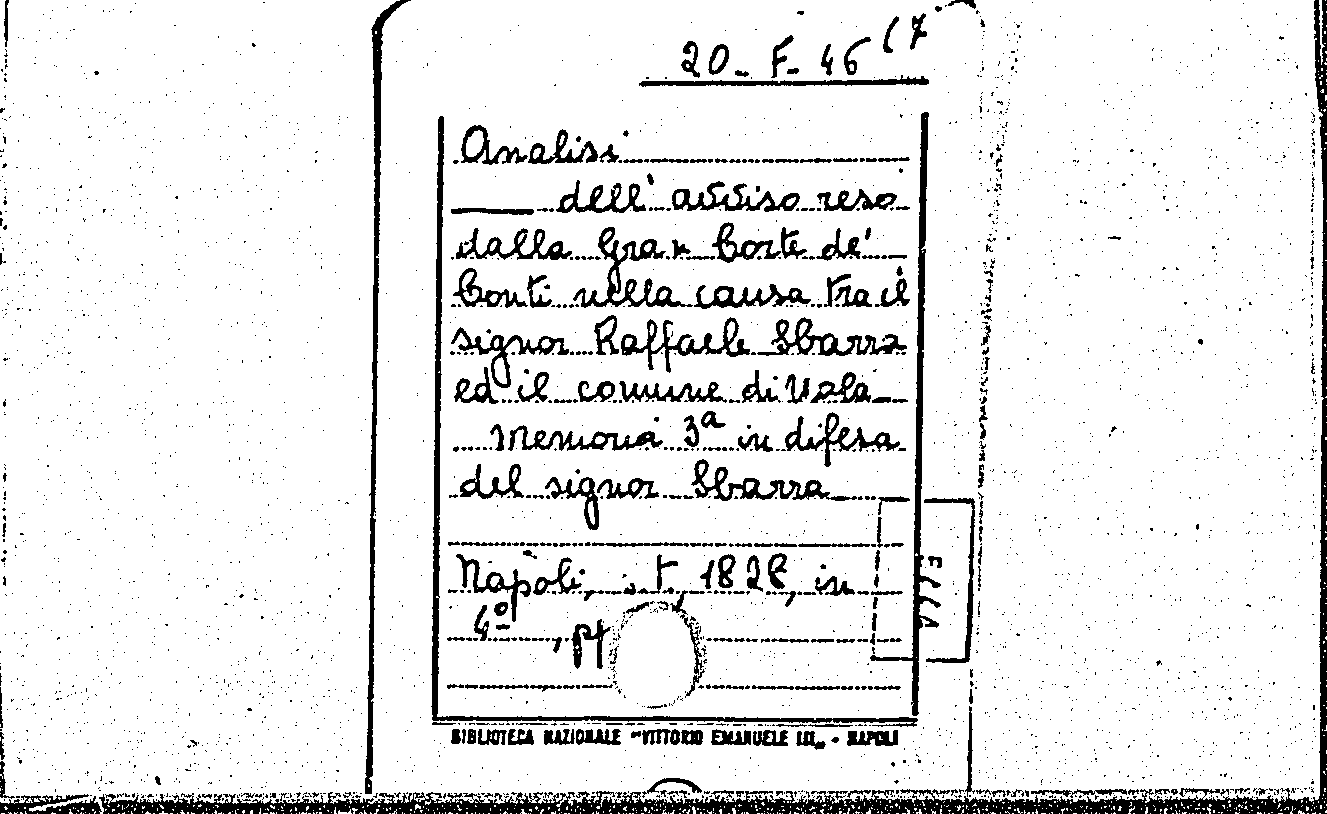 20-F-46 (7
Analisi
dell' avviso reso
dalla Gran Corte de'
Conti nella causa tra il
signor Raffaele Sbarra
ed il comune di Nola
Memoria 3ª in difesa
del signor Sbarra
Napoli, s.t., 1828, in
4º, pp
BIBLIOTECA NAZIONALE "VITTORIO EMANUELE III" - NAPOLI